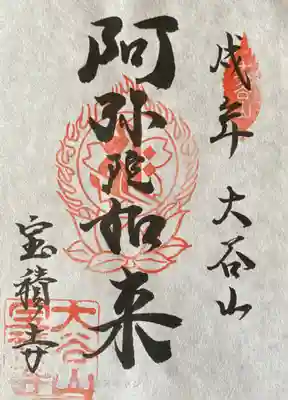 戌年 大谷山
阿弥陀如来
宝積寺
大谷山